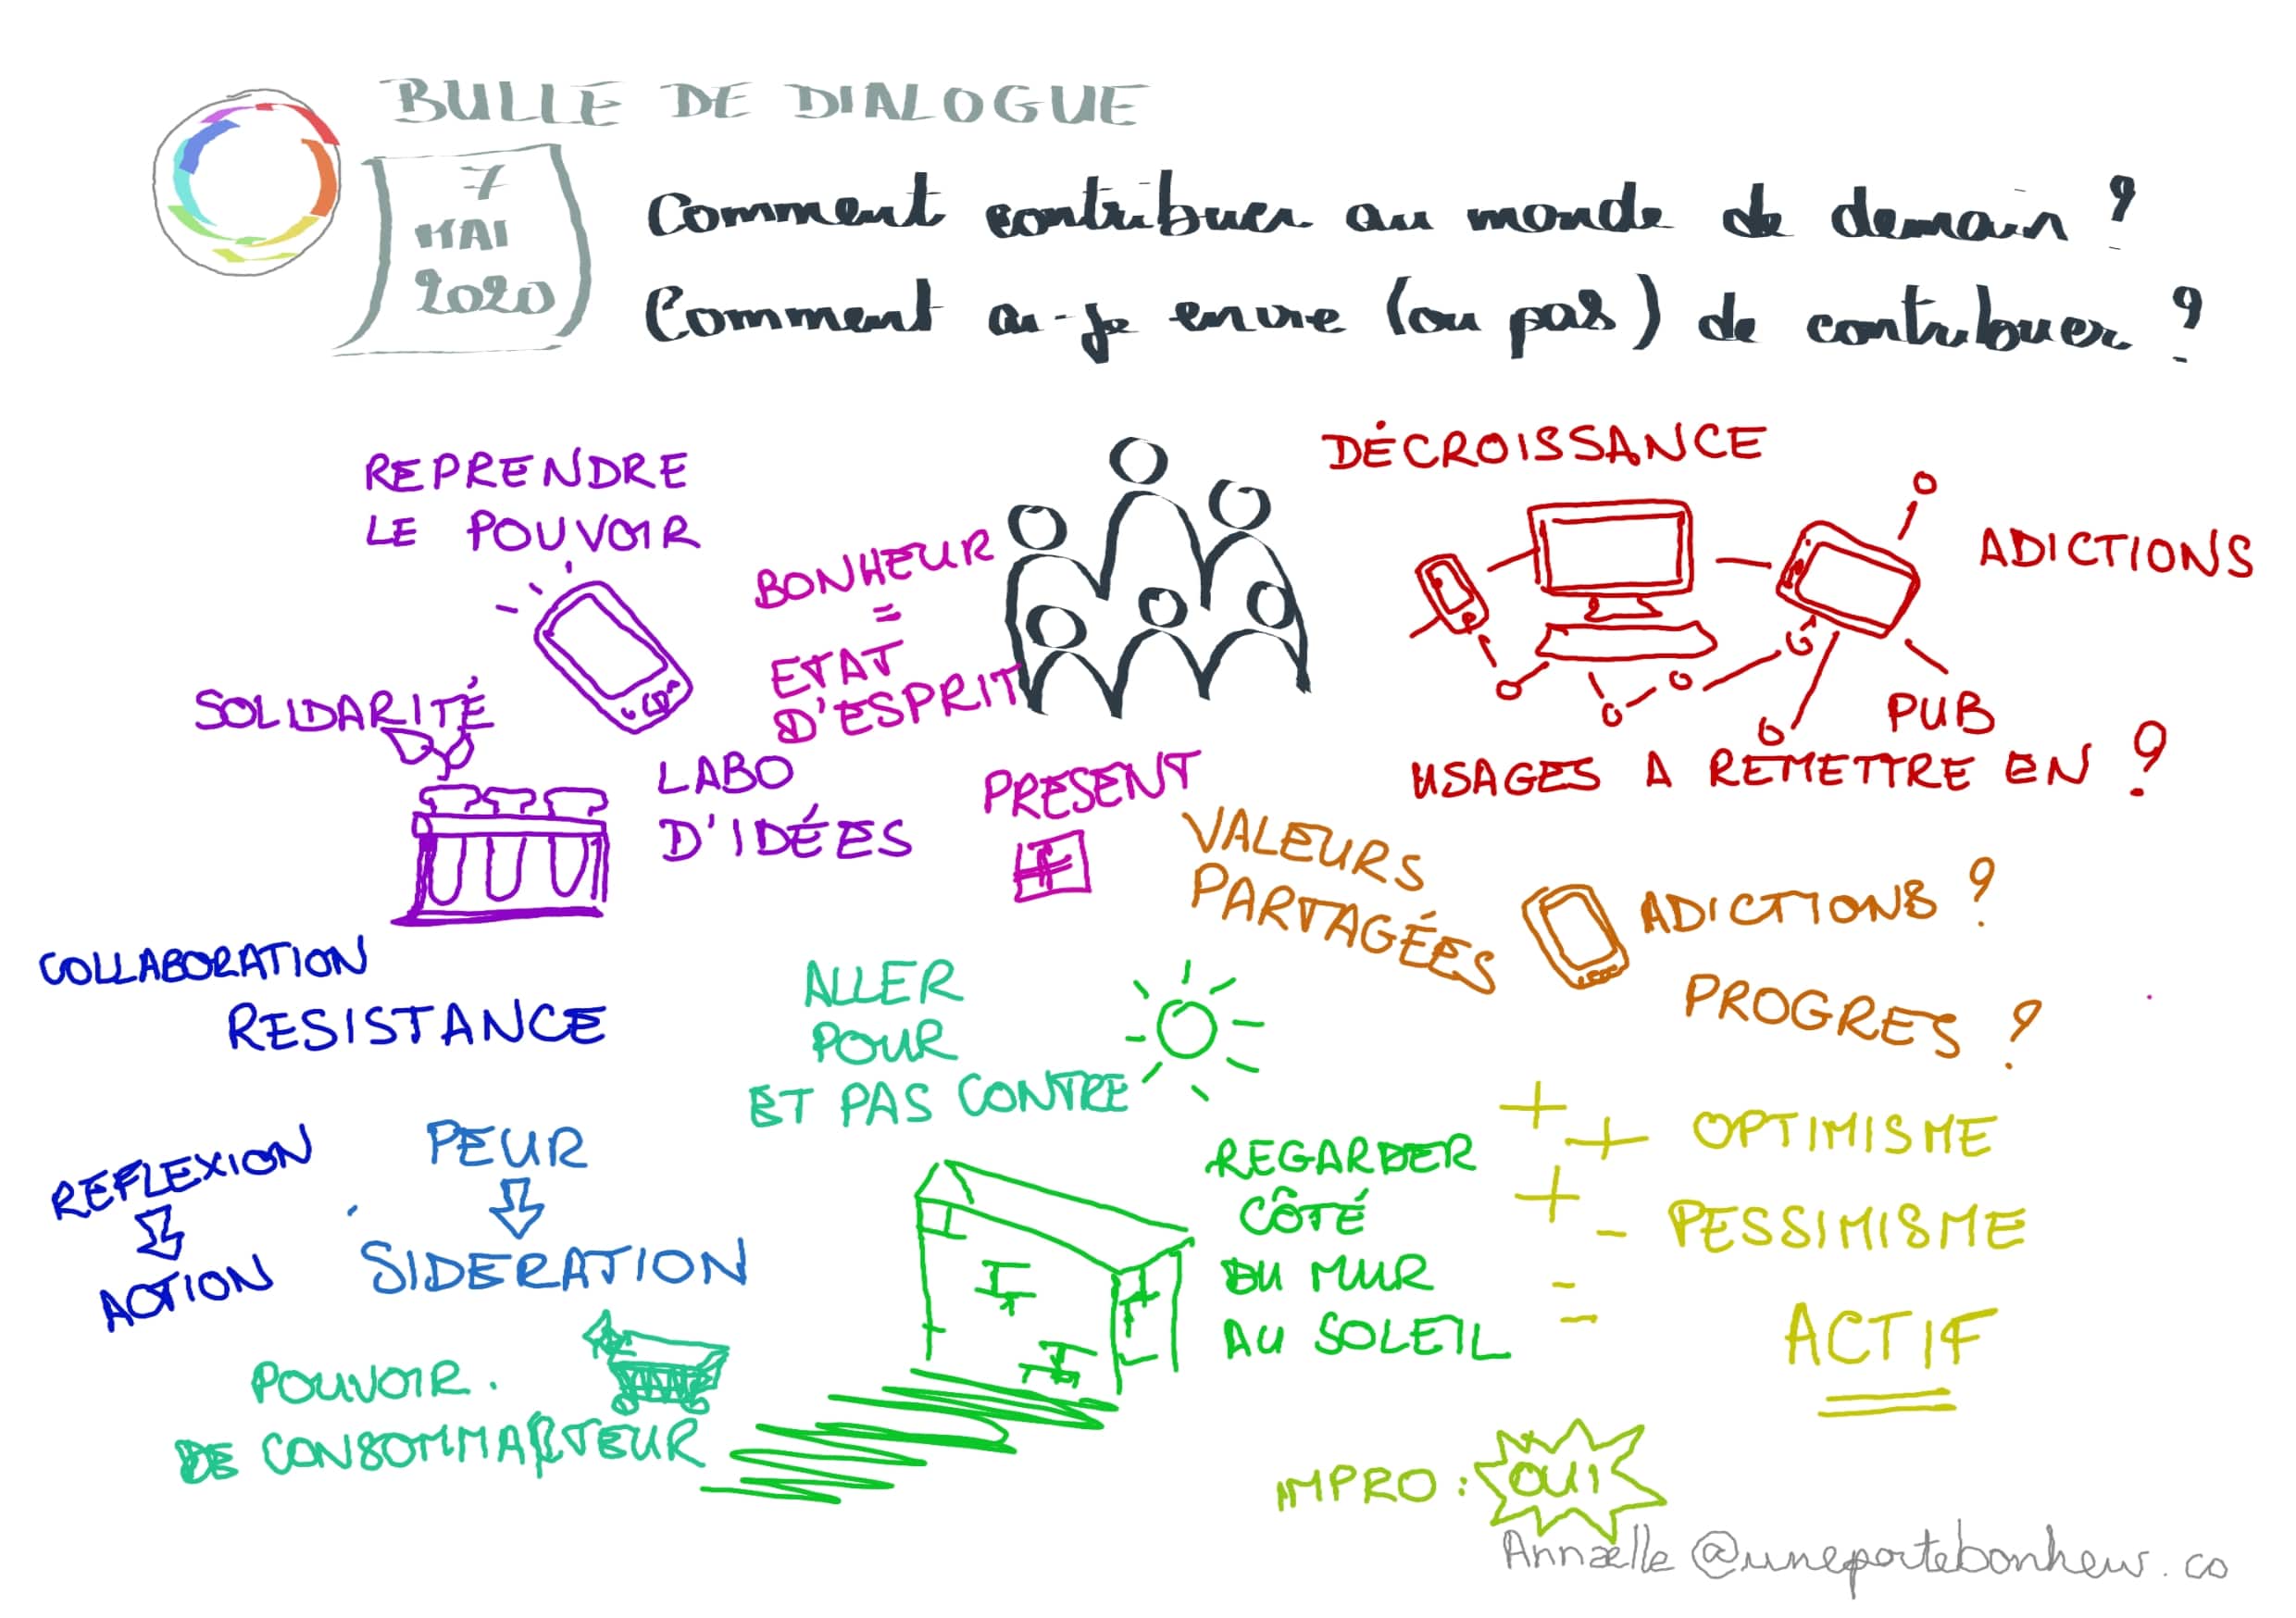 BULLE DE DIALOGUE
7
MAI
2020
Comment contribuer au monde de demain ?
Comment ai-je envie (ou pas) de contribuer ?
REPRENDRE
LE POUVOIR
BONHEUR
=
ETAT
D'ESPRIT
DÉCROISSANCE
ADICTIONS
PUB
USAGES A REMETTRE EN ?
SOLIDARITÉ
LABO
D'IDÉES
PRESENT
VALEURS
PARTAGÉES
ADICTIONS ?
PROGRES ?
COLLABORATION
RESISTANCE
ALLER
POUR
ET PAS CONTRE
REFLEXION
ACTION
PEUR
SIDERATION
REGARDER
CÔTÉ
DU MUR
AU SOLEIL
+ + OPTIMISME
+ - PESSIMISME
- -
ACTIF
POUVOIR.
DE CONSOMMARTEUR
IMPRO : OUI
Annaelle @uneportebonheur.co